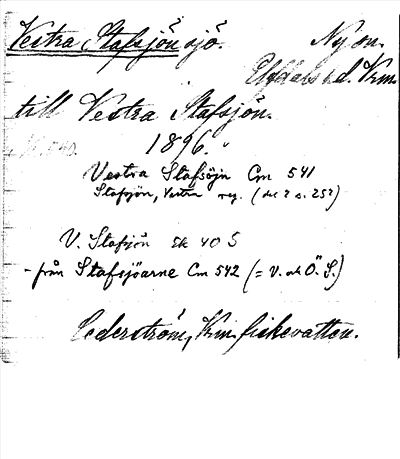 Vestra Stafsjön sjö. Ny sn.
Elfdals h.d. Vrm.
till Vestra Stafsjön.
1896.
Vestra Stafsöjn Cm 541
Stafsjön, Vestra reg. (del 2 s. 252)
V. Stafsjön Ek 40 S
- från Stafsjöarne Cm 542 (= V. och Ö. S.)
Cederström, Vrm. fiskevatten.